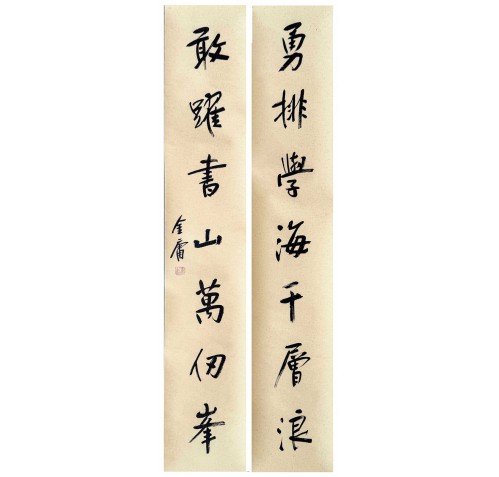 勇排學海千層浪
敢躍書山萬仞峯
金庸